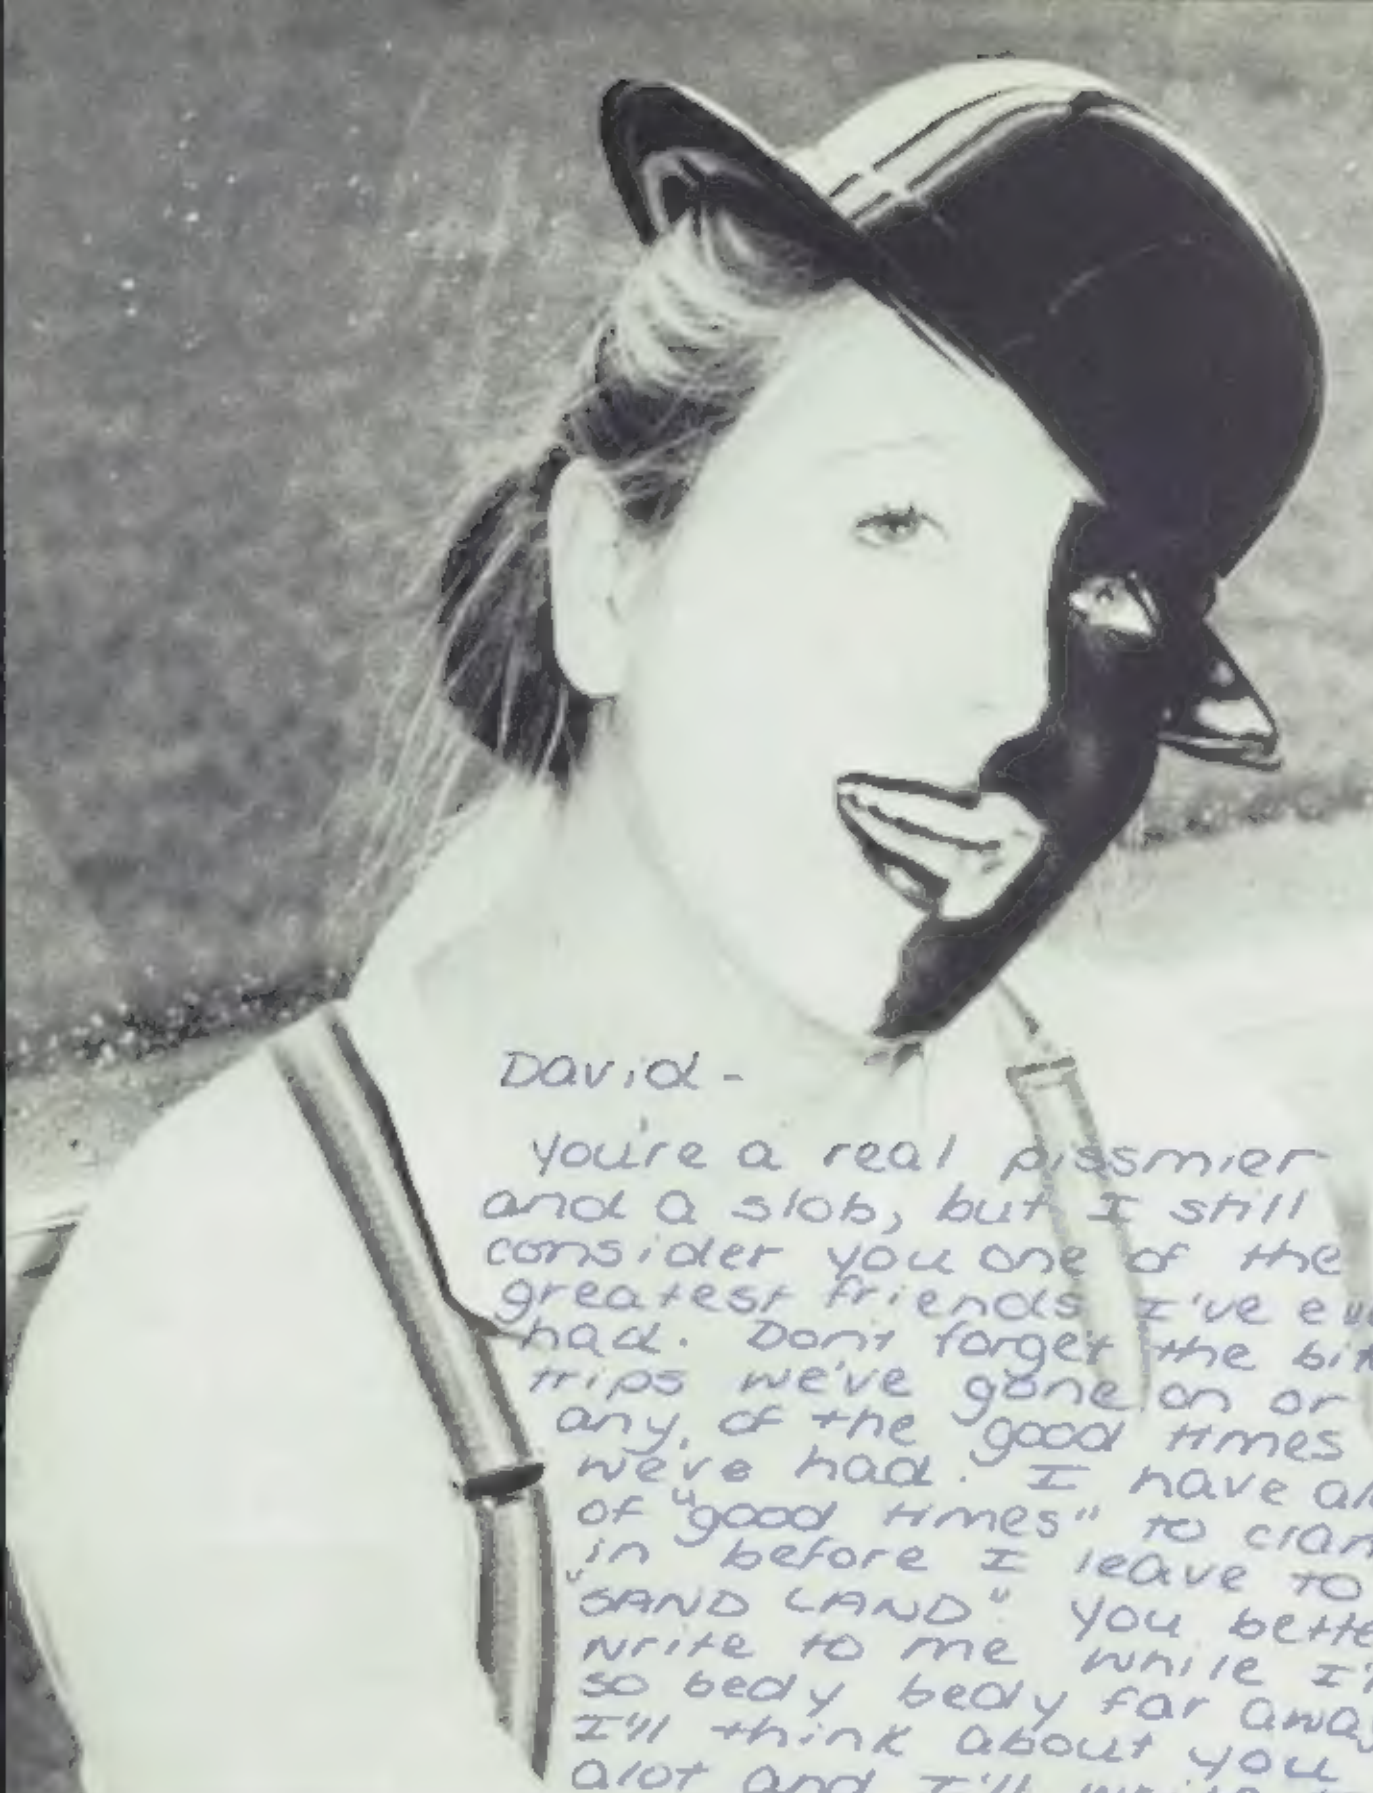 David -
you're a real pissmier
and a slob, but I still
consider you one of the
greatest friends I've
had. Dont forget the
trips we've gone on or
any, of the good times
we've had. I have
of "good times" to
in before I leave to
"SAND LAND". You
write to me while
so bedy bedy far
I'll think about you
alot and I'll